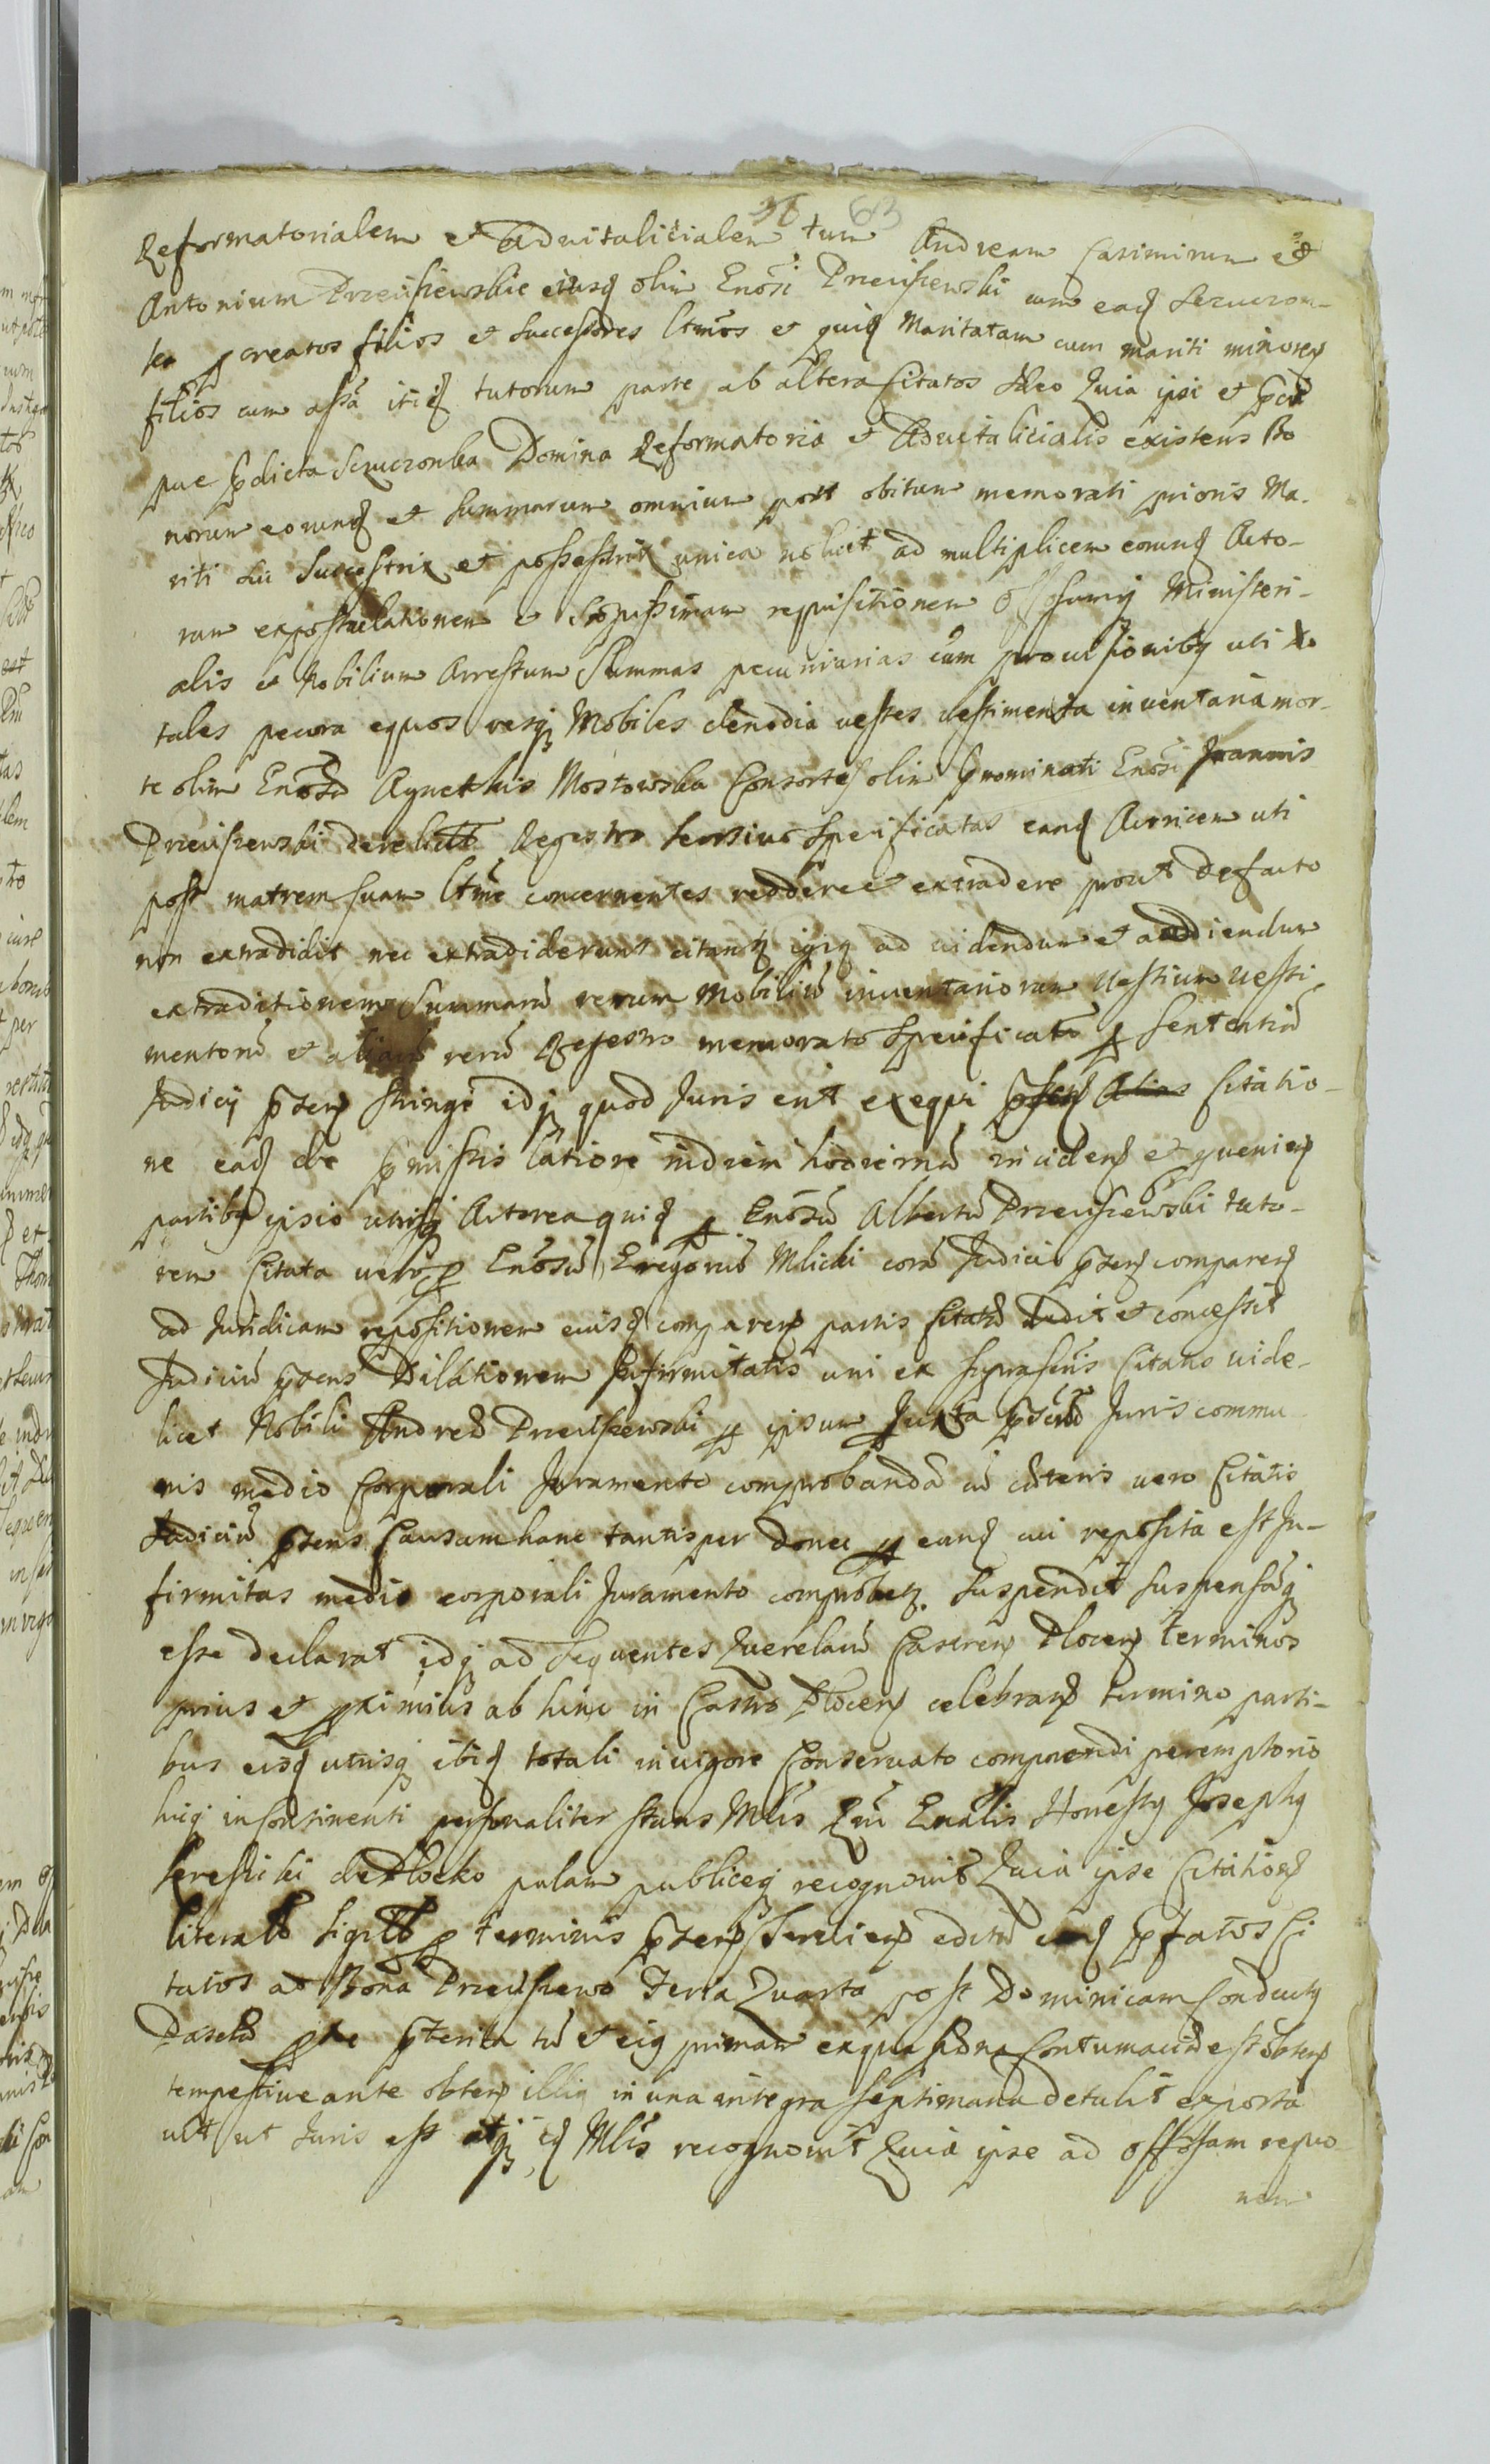 36 63
Reformatorialem et Aduitalitialem tum Andream Casimirum et
Antonium Przeciszewskie eiusq olim Gnosi Przeciszewski cum eadq
ka pcreatos filios et successores ltmos et quidq Maritatam cum mariti minoresq
filios cum assa itidq tutorum parte ab altera Citatos Ideo Quia ipsi et
pue pdicta Domina Reformatoria et Aduitalicialis existens Bo
norum eorundq et summarum omnium post obitum memorati prioris Ma-
riti sui Successtrix et possesstrix unica noluit ad multiplicem eorundq Acto-
rum expostulationem et requisitionem Ministeri-
alis et Nobilium Arrestum Summas pecuniarias cum prouisionibq uti to
tales pecora equos resq Mobiles clenodia uestes uestimenta inuentaria mor-
te olim Gnosa Agnethis Mostowska Consortis olim pnominati Gnosi Joannis
Przeciszewski derelicta Regestro seorsiuo Specificatas eandq Actricem uti
post matrem suam ltme concernentes reddere et extradere prout de facto
non extradidit nec extradiderunt citantq igiq ad uidendum et audiendum
extraditionem Summaru rerum Mobiliu inuentariorum Uestium uesti
mentoru et aliaru reru Regestro memorato Specificato p sententia
Judicij pntenq stringi idq quod Juris erit exequi Citatio-
ne eadq de pmissis latiore indiem hodiernu incidenq et queniens
partibq ipsis utrisq Actorea quidq p Gnosu Albertu Przeciszewski tuto-
rem Citata uero p Gnosu Gregoriu Mlicki cora Judicio pntenq comparenq
ad Juridicam repositionem eiusdq comparenq partis Citata dedit et concessit
Judiciu pntens Dilationem Infirmitatis uni ex suprascris Citatis uide-
licet Nobili Andrea Przeciszewski p ipsum Juxta Juris commu
nis medio Corporali Juramento comprobanda cu caeteris uero Citatis
Judiciu pntens Causam hanc tantisper donec p eundq cui reposita est In-
firmitas medio corporali Juramento comprobetq suspendit suspensaq
esse declarat idq ad sequentes Querelaru Castrenq Plocenq terminos
prius et pximius ab hinc in Castro Plocenq celebranq termino parti-
bus eisdq utrisq ibidq totali in uigore Conseruato comparendi peremptorio
huiq incontinenti personaliter stans Mlis Gnalis Honestq Josephq
de Plocko palam publiceq recognouit Quia ipse Citationq
p terminis pntenq edita pfatos Ci
tatos ad Bona Przeciszewo Feria Quarta post Dominicam Conductq
Paschae pxe pterita tu et eiq primam exqua Contumacia est obtenq
tempestiue ante obtenq illiq in una integra septimana detulit exporta
uit ut Juris est idq Mlis recognouit Quia ipse ad
nem